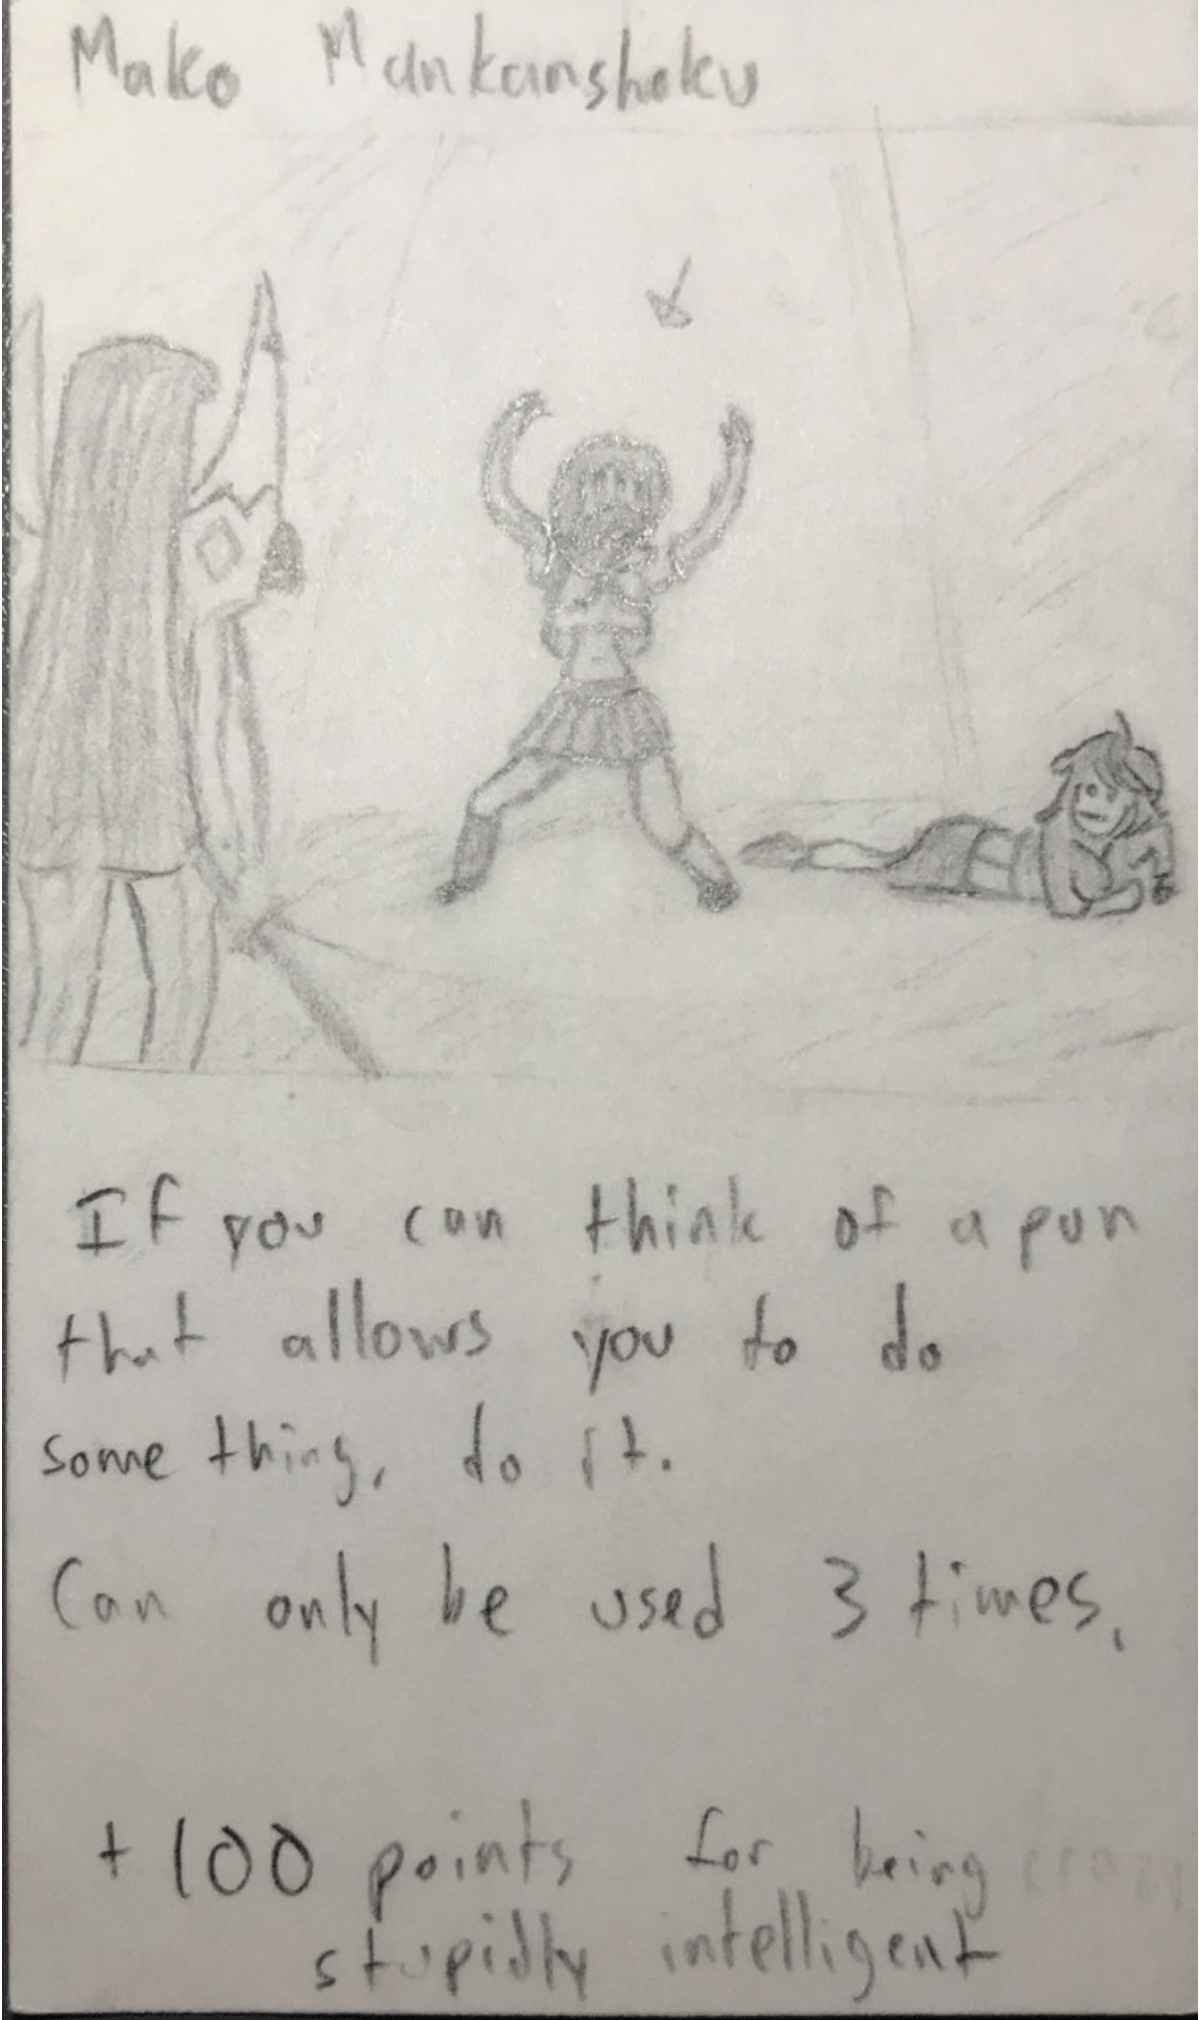 Mako Mankanshoku
If you can think of a pun
that allows you to do
something, do it.
Can only be used 3 times.
+100 points for being
stupidly intelligent